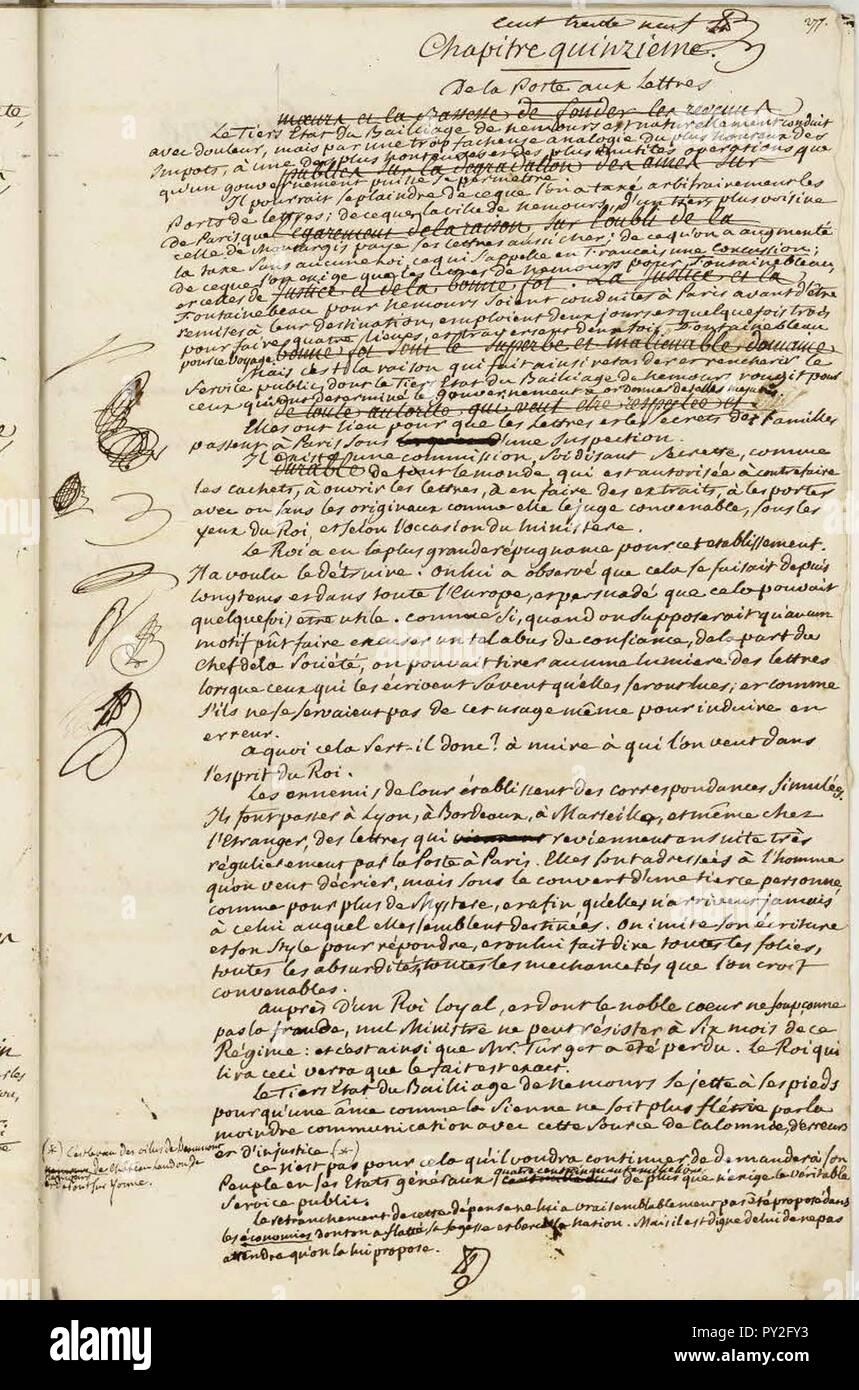 cent trente neuf
277.
Chapitre quinzième.
De la Poste aux Lettres
mœurs et la Bassesse de fonder les revenus
Le Tiers Etat du Bailliage de nemours est naturellement conduit
avec douleur, mais par une trop facheuse analogie du plus honteux des
Impots, à une des plus honteuses et des plus inutiles operations que
publics sur la dégradation des ames sur
qu'un gouvernement puisse se permettre.
Il pourrait se plaindre de ce que l'on a taxé arbitrairement les
Ports de lettres; de ce que la ville de nemours, d'un tiers plus voisine
de Paris que l'égarement de la raison, sur l'oubli de la
celle de Montargis paye ses lettres aussi cher; de ce qu'on a augmenté
la taxe sans aucune loi, ce qui s'appelle en Francais une concussion;
de ce que l'on exige que les lettres de nemours pour Fontainebleau,
et celles de justice et de la bonne foi. La justice et la
Fontainebeau pour nemours soient conduites à Paris avant d'être
remises à leur destination, emploient deux jours et quelque fois trois
pour faire quatre lieues, et traversent deux fois Fontainebleau
pour le voyage bonne foi sont le superbe et inalienable domaine
Mais c'est la raison qui fait ainsi retarder et rencherir le
Service public, dont le Tiers Etat du Bailliage de nemours rougit pour
ceux qui ont determiné le gouvernement à ordonner de telles mesures.
de toute autorité qui veut être respectée et
Elles ont lieu pour que les Lettres et les secrets des Familles
passent à Paris sous d'une Inspection.
Il existe une commission, soi disant secrette, comme
durable de tout le monde, qui est autorisée à contrefaire
les cachets, à ouvrir les lettres, à en faire des extraits, à les porter
avec ou sans les originaux comme elle le juge convenable, sous les
yeux du Roi, et selon l'occasion du ministere.
Le Roi a eu la plus grande répugnance pour cet etablissement.
Il a voulu le détruire. on lui a observé que cela se faisait depuis
longtems et dans toute l'Europe, et persuadé que cela pouvait
quelquefois être utile. comme si, quand on supposerait qu'aucun
motif pût faire excuser un tel abus de confiance, de la part du
Chef de la Société, on pouvait tirer aucune lumiere des lettres
lorsque ceux qui les écrivent savent qu'elles seront lues; et comme
s'ils ne se servaient pas de cet usage même pour induire en
erreur.
a quoi cela sert-il donc? à nuire à qui l'on veut dans
l'esprit du Roi.
Les ennemis de Cour établissent des correspondances simulées.
Ils font passer à Lyon, à Bordeaux, à Marseille, et même chez
l'Etranger, des lettres qui viennent reviennent ensuite très
régulierement par la Poste à Paris. Elles sont adressées à l'homme
qu'on veut décrier, mais sous le couvert d'une tierce personne,
comme pour plus de Mystere, et afin qu'elles n'arrivent jamais
à celui auquel elles semblent destinées. On imite son écriture
et son Style pour répondre, et on lui fait dire toutes les folies,
toutes les absurdités, toutes les mechancetés que l'on croit
convenables.
aupres d'un Roi loyal, et dont le noble coeur ne soupçonne
pas la fraude, nul Ministre ne peut résister à six mois de ce
Régime: et c'est ainsi que Mr. Turgot a été perdu. Le Roi qui
lira ceci verra que le fait est exact.
Le Tiers Etat du Bailliage de nemours se jette à ses pieds
pour qu'une âme comme la sienne ne soit plus flétrie par la
moindre communication avec cette source de Calomnie, d'erreurs
et d'injustice (*)
(*) C'est le vœu des villes de
de Château Landon de
et de Pont sur Yonne.
ce n'est pas pour cela qu'il voudra continuer de demander à son
Peuple en ses Etats généraux de plus que n'exige le véritable
Service public.
Le retranchement de cette dépense ne lui a vraisemblablement pas été proposé dans
les économies dont on a flatté sa sagesse et bercé la nation. Mais il est digne de lui de ne pas
attendre qu'on la lui propose.
alamy
Image ID: PY2FY3
www.alamy.com